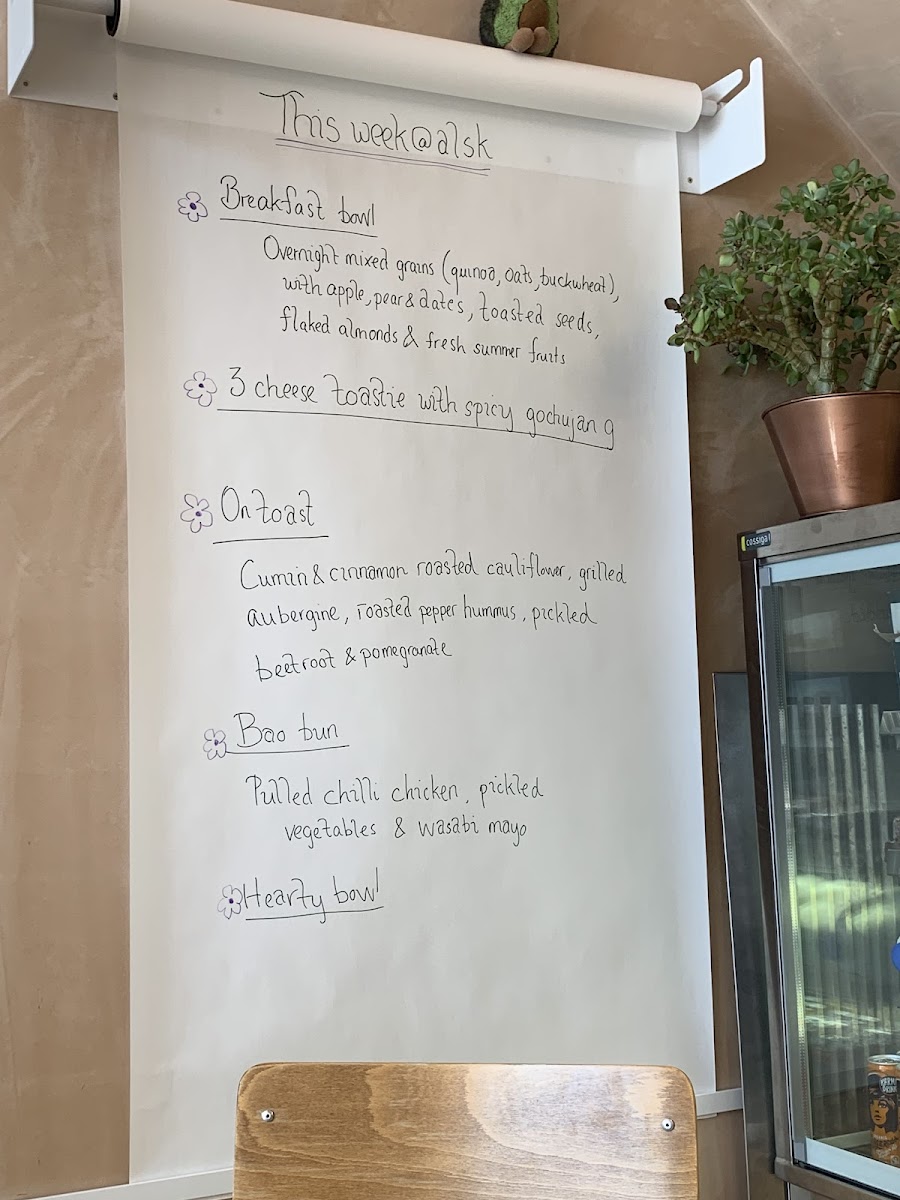 This week@alsk
Breakfast bowl
Overnight mixed grains (quinoa, oats, buckwheat),
with apple, pear & dates, toasted seeds,
flaked almonds & fresh summer fruits
3 cheese toastie with spicy gochujang
On toast
Cumin & cinnamon roasted cauliflower, grilled
aubergine, roasted pepper hummus, pickled
beetroot & pomegranate
Bao bun
Pulled chilli chicken, pickled
vegetables & wasabi mayo
Hearty bowl
cossiga
KARMA
DRINKS